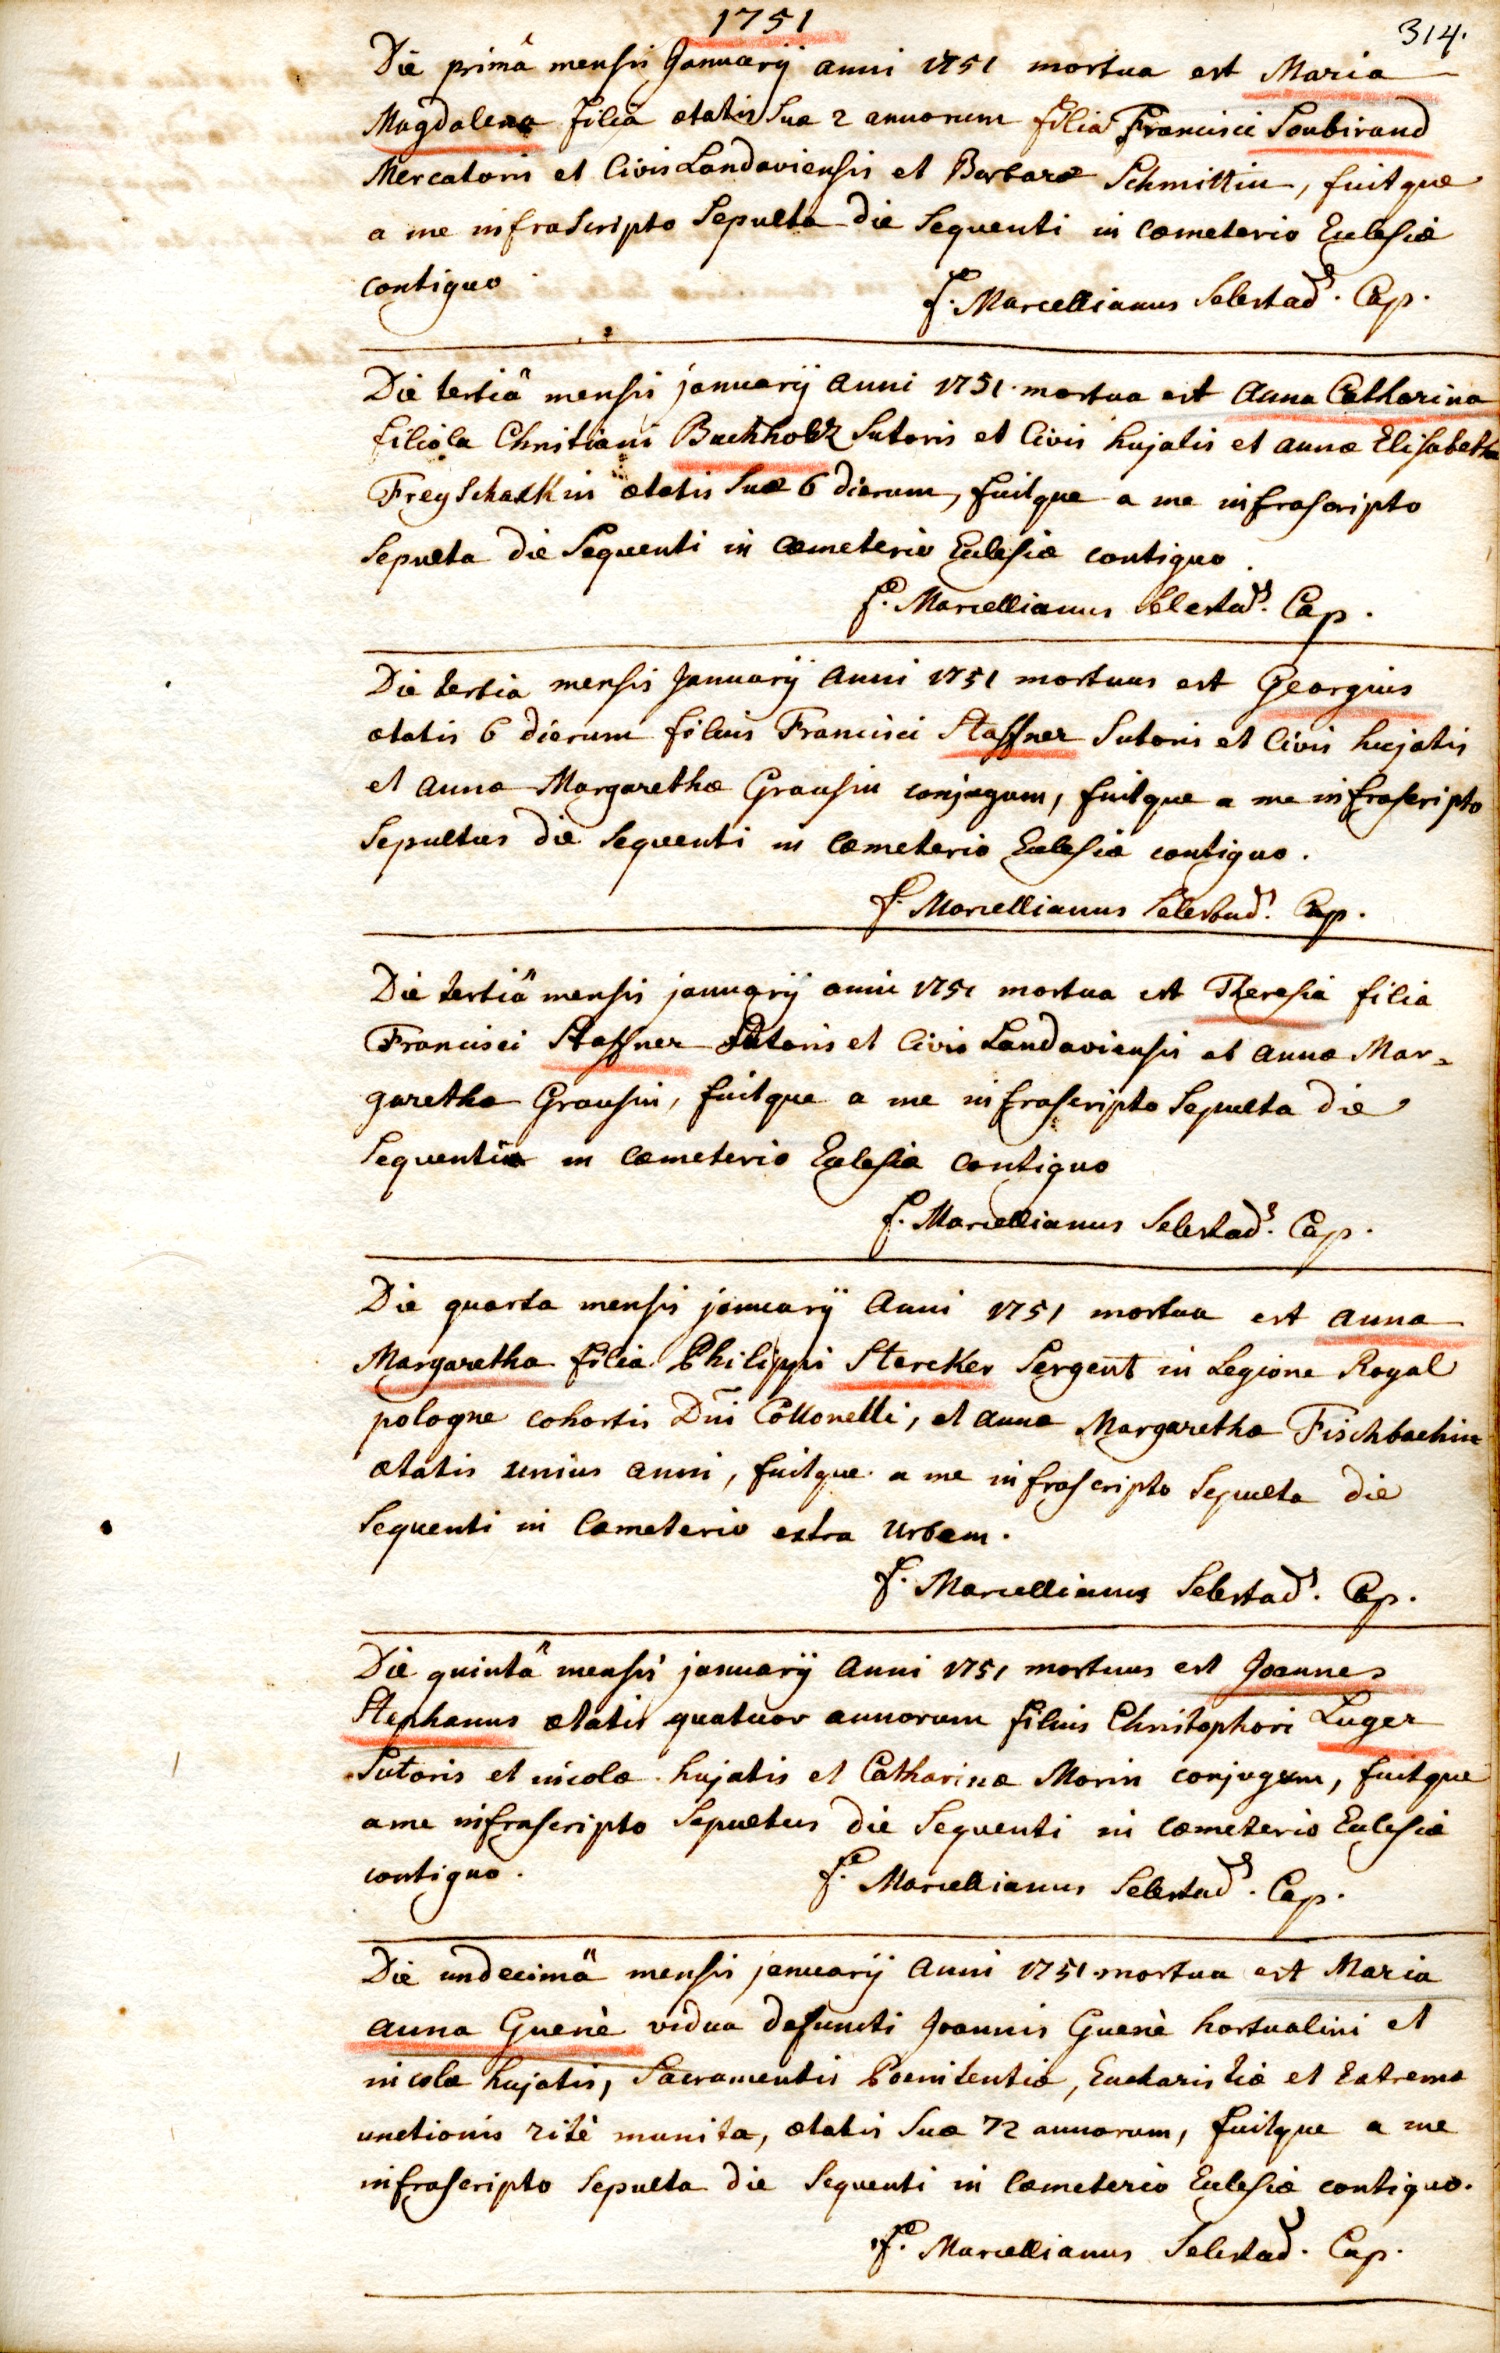 1751
314.
Die primâ mensis Januarij anni 1751 mortua est Maria
Magdalena filia ætatis Suæ 2 annorum filia Francisci Soubirand
Mercatoris et Civis Landaviensis et Barbaræ Schmittin, fuitque
a me infrascripto Sepulta die Sequenti in cæmeterio Eclesiæ
contiguo
f. Marcellianus Selestad. Cap.
Die tertiâ mensis januarij anni 1751 mortua est anna Catharina
filiola Christiani Buchholtz Sutoris et Civis hujatis et annæ Elisabetha
Freyschazkin ætatis Suæ 6 dierum, fuitque a me infrascripto
Sepulta die Sequenti in cæmeterio Eclesiæ contiguo.
f. Marcellianus Selestad. Cap.
Die tertia mensis Januarij anni 1751 mortuus est Georgius
ætatis 6 dierum filius Francisci Staffner Sutoris et Civis hujatis
et annæ Margarethæ Grausin conjugum, fuitque a me infrascripto
Sepultus die Sequenti in cæmeterio Eclesiæ contiguo.
f. Marcellianus Selestad. Cap.
Die tertiâ mensis januarij anni 1751 mortua est Theresia filia
Francisci Staffner Sutoris et Civis Landaviensis et annæ Mar-
garethæ Grausin, fuitque a me infrascripto Sepulta die
Sequenti in cæmeterio Eclesiæ contiguo
f. Marcellianus Selestad. Cap.
Die quarta mensis januarij Anni 1751 mortua est anna
Margaretha filia Philippi Stercker Sergent in Legione Royal
pologne cohortis Dni Collonelli, et annæ Margarethæ Fischbachin
ætatis unius anni, fuitque a me infrascripto Sepulta die
Sequenti in Cæmeterio extra Urbem.
f. Marcellianus Selestad. Cap.
Die quintâ mensis januarij anni 1751 mortuus est Joannes
Stephanus ætatis quatuor annorum filius Christophori Luger
Sutoris et incolæ hujatis et Catharinæ Morin conjugum, fuitque
a me infrascripto Sepultus die Sequenti in cæmeterio Eclesiæ
contiguo.
f. Marcellianus Selestad. Cap.
Die undecimâ mensis januarij Anni 1751 mortua est Maria
anna Guenè vidua defuncti Joannis Guenè hortualini et
incolæ hujatis, Sacramentis Poenitentiæ, Eucharistiæ et Extremæ
unctionis ritè munita, ætatis Suæ 72 annorum, fuitque a me
infrascripto Sepulta die Sequenti in Cæmeterio Eclesiæ contiguo.
f. Marcellianus Selestad. Cap.